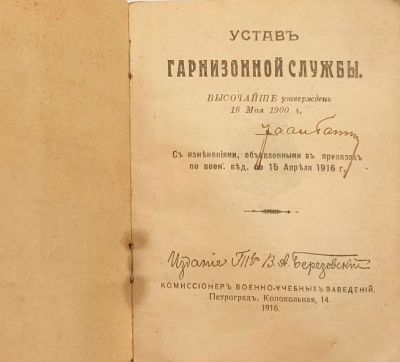 УСТАВЪ
ГАРНИЗОННОЙ СЛУЖБЫ.
ВЫСОЧАЙШЕ утвержденъ
16 Мая 1900 г.
Съ измѣненіями, объявленными въ приказахъ
по воен. вѣд. по 15 Апрѣля 1916 г.
Изданіе Т-ва В. А. Березовскій
КОМИССІОНЕРЪ ВОЕННО-УЧЕБНЫХЪ ЗАВЕДЕНІЙ.
Петроградъ, Колокольная, 14.
1916.